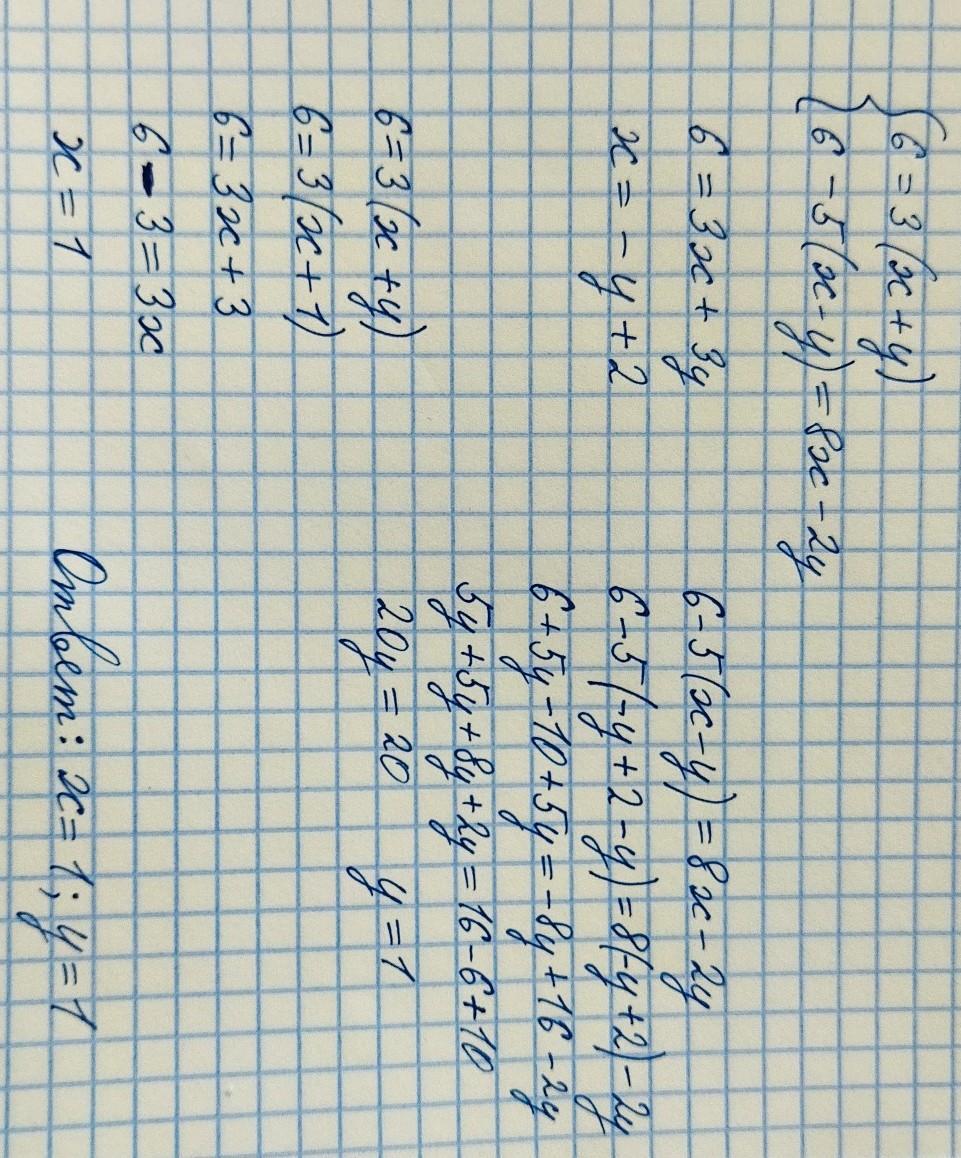 6 = 3(x + y)
6 - 5(x - y) = 8x - 2y
6 = 3x + 3y
x = - y + 2
6 - 5(x - y) = 8x - 2y
6 - 5(-y + 2 - y) = 8(-y + 2) - 2y
6 + 5y - 10 + 5y = - 8y + 16 - 2y
5y + 5y + 8y + 2y = 16 - 6 + 10
20y = 20 y = 1
6 = 3(x + y)
6 = 3(x + 1)
6 = 3x + 3
6 - 3 = 3x
x = 1
Ответ: x = 1; y = 1